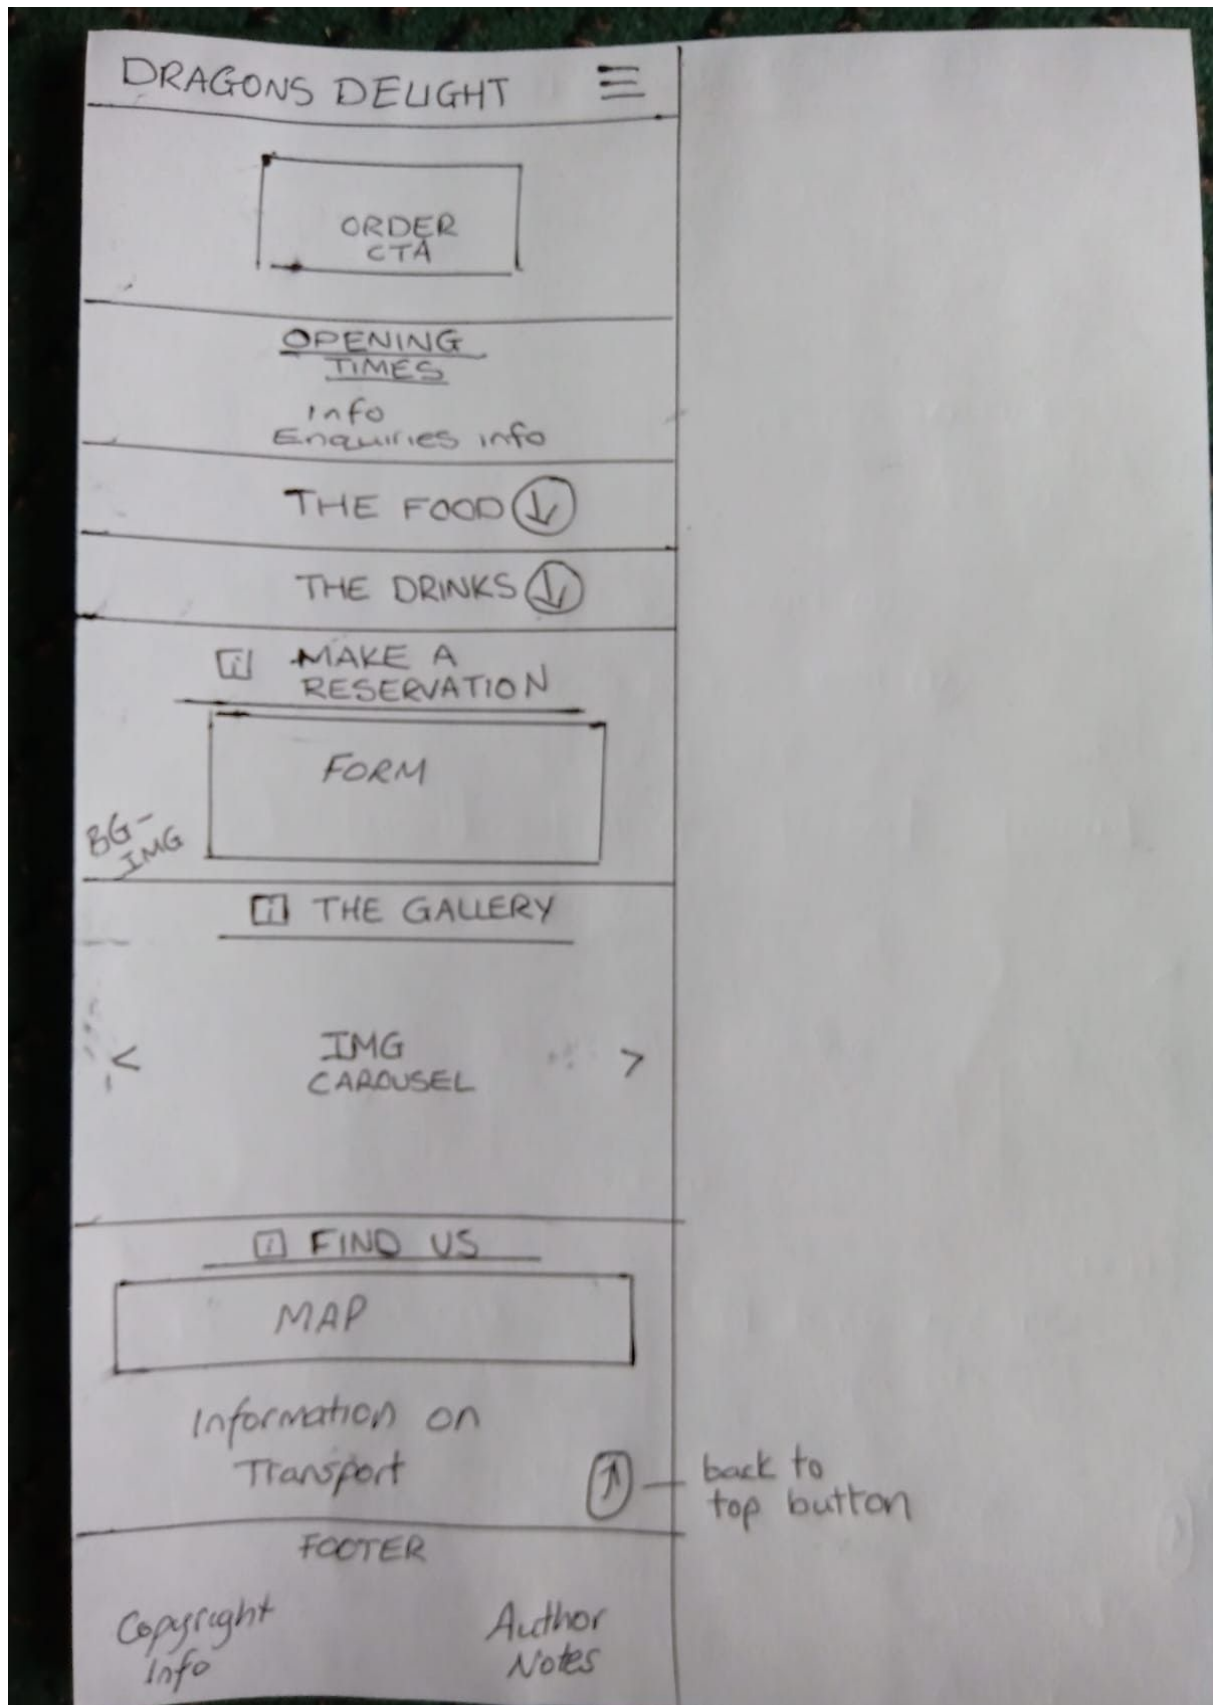 DRAGONS DELIGHT
ORDER
CTA
OPENING
TIMES
Info
Enquiries info
THE FOOD
THE DRINKS
i MAKE A
RESERVATION
FORM
BG-
IMG
i THE GALLERY
< IMG >
CAROUSEL
i FIND US
MAP
Information on
Transport
back to
top button
FOOTER
Copyright
Info
Author
Notes